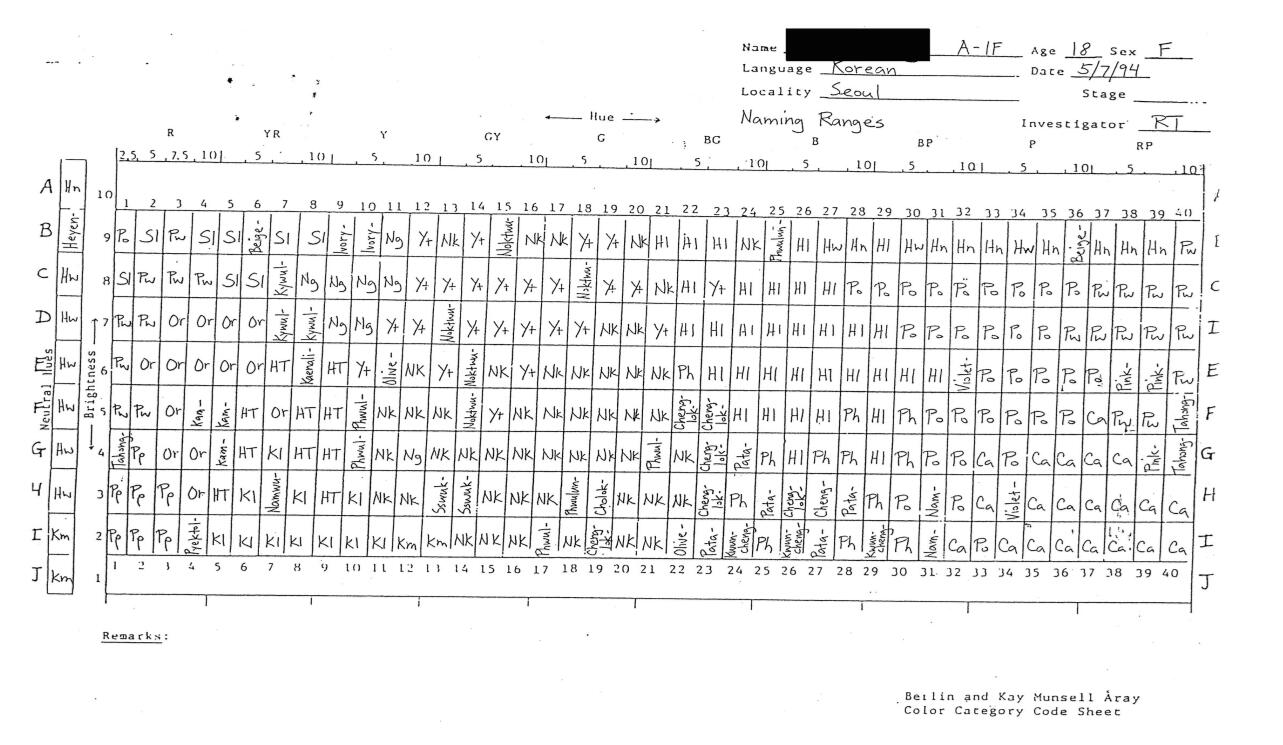 Name A-1F Age 18 Sex F
Language Korean Date 5/7/94
Locality Seoul Stage
Naming Ranges Investigator RT
← Hue →
R YR Y GY G BG B BP P RP
2.5 5 7.5 10 5 10 5 10 5 10 5 10 5 10 5 10 5 10 5 10 5 10
A Hn 10
1 2 3 4 5 6 7 8 9 10 11 12 13 14 15 16 17 18 19 20 21 22 23 24 25 26 27 28 29 30 31 32 33 34 35 36 37 38 39 40
B Heyen- 9 Po Sl Pw Sl Sl Beige- Sl Sl Ivory- Ivory- Ng Y+ Nk Y+ Noktwu- Nk Nk Y+ Y+ Nk Hl Hl Hl Nk Hl Hw Hn Hl Hw Hn Hn Hn Hw Hn Beige- Hn Hn Hn Pw
C Hw 8 Sl Pw Pw Pw Sl Sl Kywul- Ng Ng Ng Ng Y+ Y+ Y+ Y+ Y+ Y+ Noktwu- Y+ Y+ Nk Hl Y+ Hl Hl Hl Hl Po Po Po Po Po Po Po Po Po Pw Pw Pw Pw C
D Hw 7 Pw Pw Or Or Or Or Kywul- Kywul- Ng Ng Y+ Y+ Noktwu- Y+ Y+ Y+ Y+ Y+ Nk Nk Y+ Hl Hl Hl Hl Hl Hl Hl Hl Po Po Po Po Po Po Pw Pw Pw Pw Pw I
E Hw 6 Pw Or Or Or Or Or HT Kaenali- HT Y+ Olive- NK Y+ Noktwu- NK Y+ NK NK NK NK NK Ph Hl Hl Hl Hl Hl Hl Hl Hl Hl Violet- Po Po Po Po Po Pink- Pink- Pw E
F Hw 5 Pw Pw Or Kam- HT Or HT HT Phwul- NK NK NK Noktwu- Y+ NK NK NK NK NK NK Cheng-lok- Cheng-lok- Hl Hl Hl Hl Ph Hl Ph Po Po Po Po Po Po Ca Pw Pw Tahong- F
G Hw 4 Tahong- Pp Or Or Kam- HT Kl HT HT Phwul- NK Ng NK NK NK NK NK NK NK NK Phwul- NK Cheng-lok- Pata- Ph Hl Ph Ph Hl Ph Po Po Ca Po Ca Ca Ca Ca Pink- Tahong- G
H Hw 3 Pp Pp Pp Or HT Kl Namwu- Kl HT Kl NK NK Sswuk- Sswuk- NK NK NK Phwulun- NK NK NK Cheng-lok- Ph Pata- Cheng-lok- Cheng- Pata- Ph Po Nam- Po Ca Violet- Ca Ca Ca Ca Ca Ca H
I Km 2 Pp Pp Pp Pyektol- Kl Kl Kl Kl Kl Kl Kl Km Km NK NK NK Phwul- NK Cheng-lok- NK NK Olive- Pata- Kwun-cheng Ph Kwun-cheng Pata- Ph Kwun-cheng Ph Nam- Ca Po Ca Ca Ca Ca Ca Ca Ca I
J Km 1 1 2 3 4 5 6 7 8 9 10 11 12 13 14 15 16 17 18 19 20 21 22 23 24 25 26 27 28 29 30 31 32 33 34 35 36 37 38 39 40 J
Neutral Hues
← Brightness →
Remarks:
Berlin and Kay Munsell Array
Color Category Code Sheet